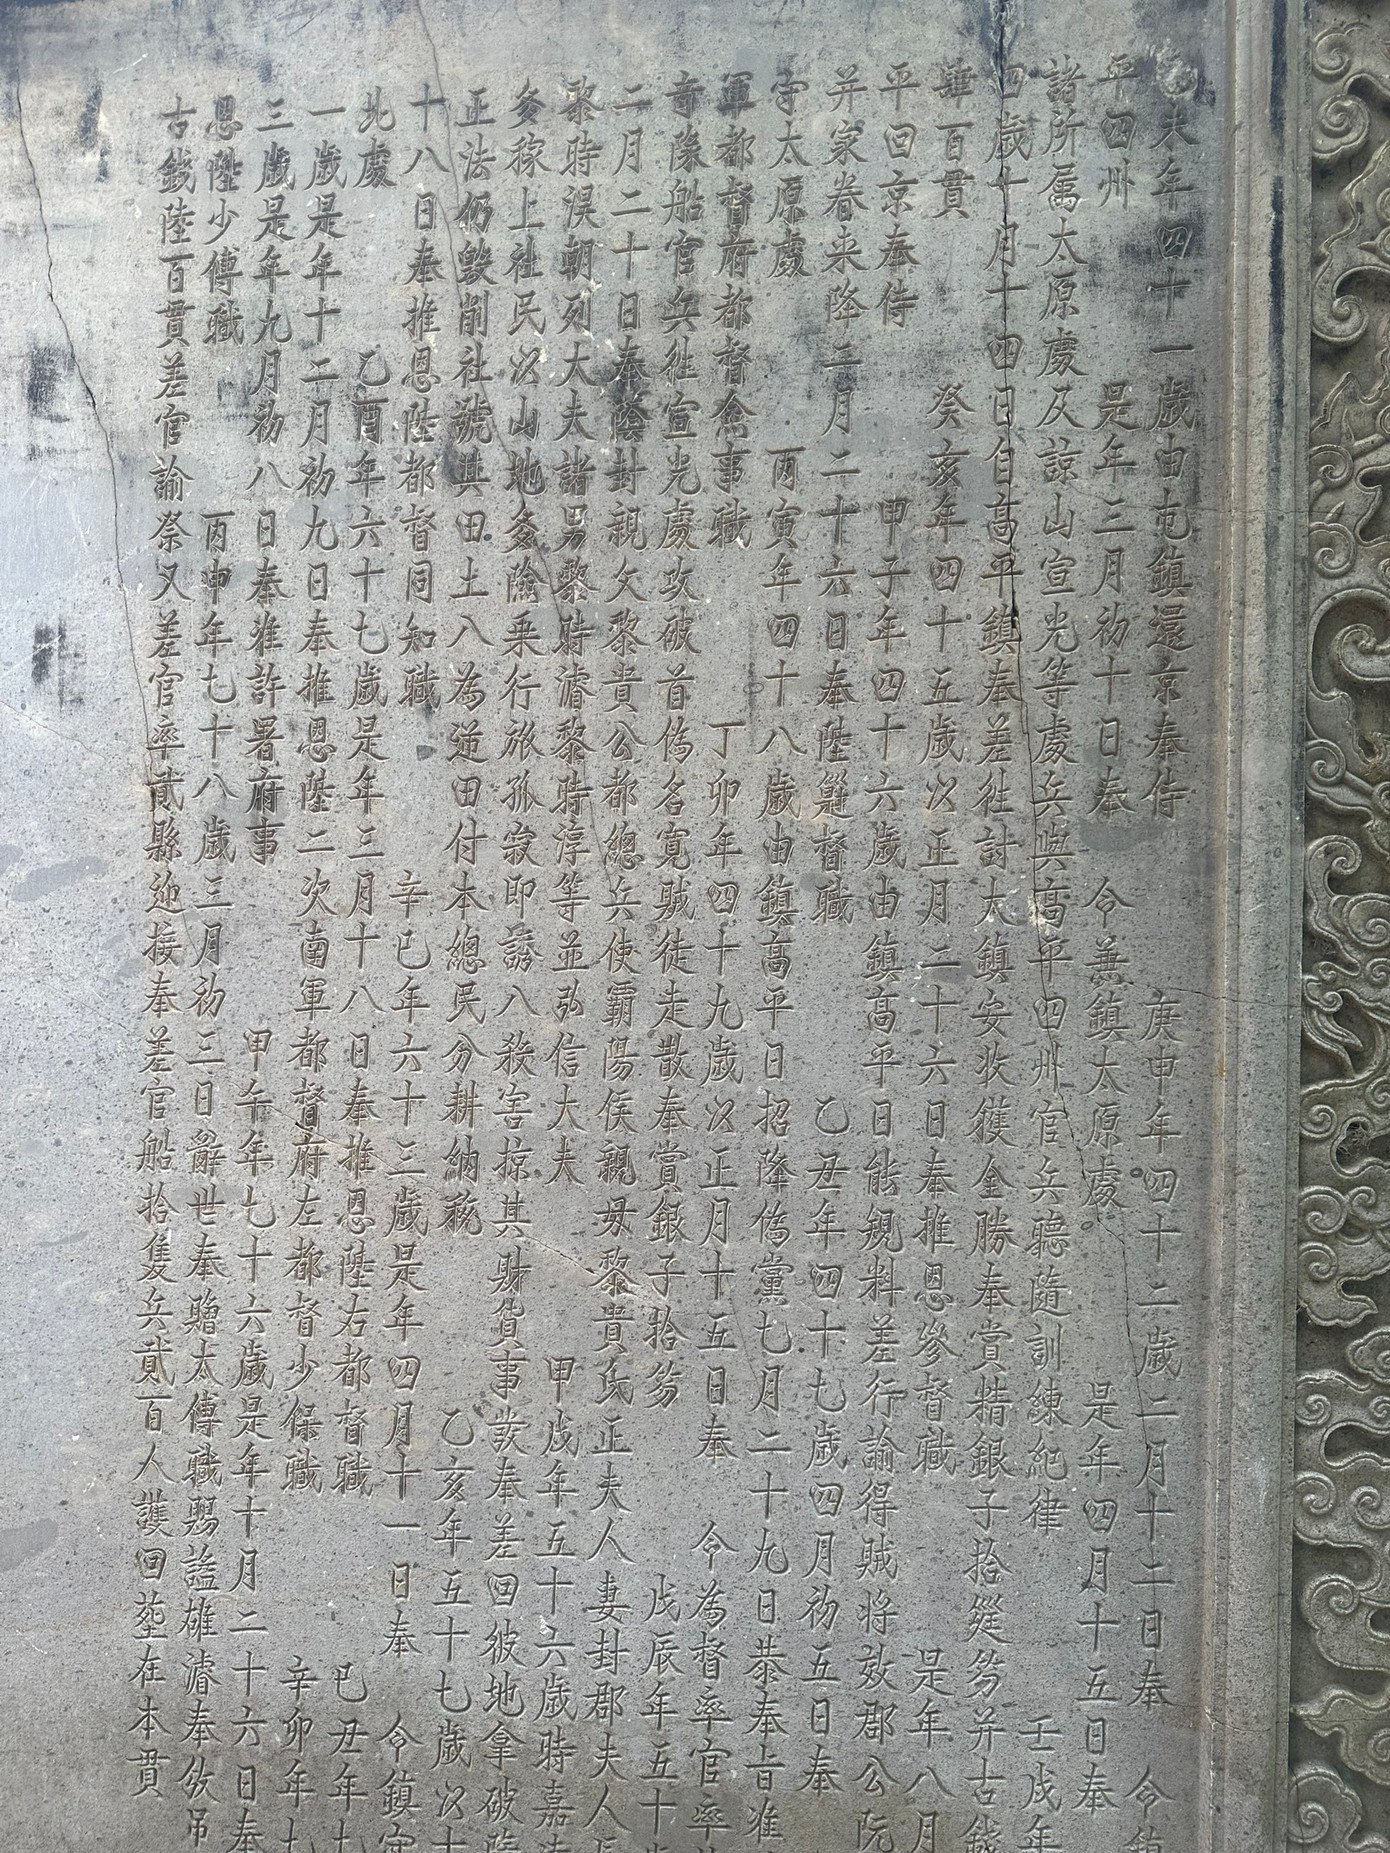 未年四十一歲由屯鎮還京奉侍 庚申年四十二歲二月十二日奉 令鎮
平四州 是年三月初十日奉 令兼鎮太原處 是年四月十五日奉
諸所属太原處及諒山宣光等處兵與高平四州官兵聽隨訓練紀律 壬戌年
四歲十月十四日自高平鎮奉差徃討太鎮安收獲金勝奉賞精銀子拾笏并古錢
百貫 癸亥年四十五歲以正月二十六日奉推恩參督職 是年八月
平回京奉侍 甲子年四十六歲由鎮高平日能規料差行諭得賊将效郡公阮
并家眷来降三月二十六日奉陞督職 乙丑年四十七歲四月初五日奉
守太原處 丙寅年四十八歲由鎮高平日招降偽黨七月二十九日恭奉旨准
軍都督府都督僉事職 丁卯年四十九歲以正月十五日奉 令為督率官率
奇隊船官兵徃宣光處攻破首偽名寬賊徒走散奉賞銀子拾笏 戊辰年五十
二月二十日奉蔭封親父黎貴公都總兵使霸陽侯親母黎貴氏正夫人妻封郡夫人
黎時淏朝列大夫諸男黎時濬黎時淳等並弘信大夫 甲戌年五十六歲時嘉
多稼上社民以山地多險乗行旅孤寂即誘入殺害掠其財貨事發奉差回彼地拿破
正法仍毀削社號其田土入為逆田付本總民分耕納稅 乙亥年五十七歲以十
十八日奉推恩陞都督同知職 辛巳年六十三歲是年四月十一日奉 令鎮守
北處 乙酉年六十七歲是年三月十八日奉推恩陞右都督職 己丑年七
一歲是年十二月初九日奉推恩陞二次南軍都督府左都督少保職 辛卯年七
三歲是年九月初八日奉准許署府事 甲午年七十六歲是年十月二十六日奉
恩陞少傅職 丙申年七十八歲三月初三日辭世奉贈太傅職賜諡雄濬奉敛吊
古錢陸百貫差官諭祭又差官率貳縣迎接奉差官船拾隻兵貳百人護回塟在本貫